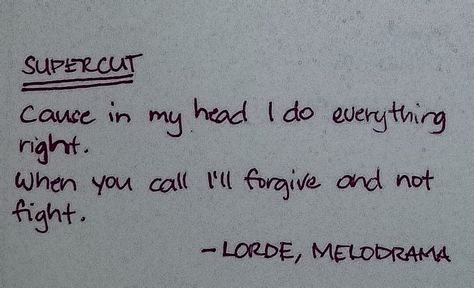 SUPERCUT
Cause in my head I do everything
right.
When you call I'll forgive and not
fight.
- LORDE, MELODRAMA